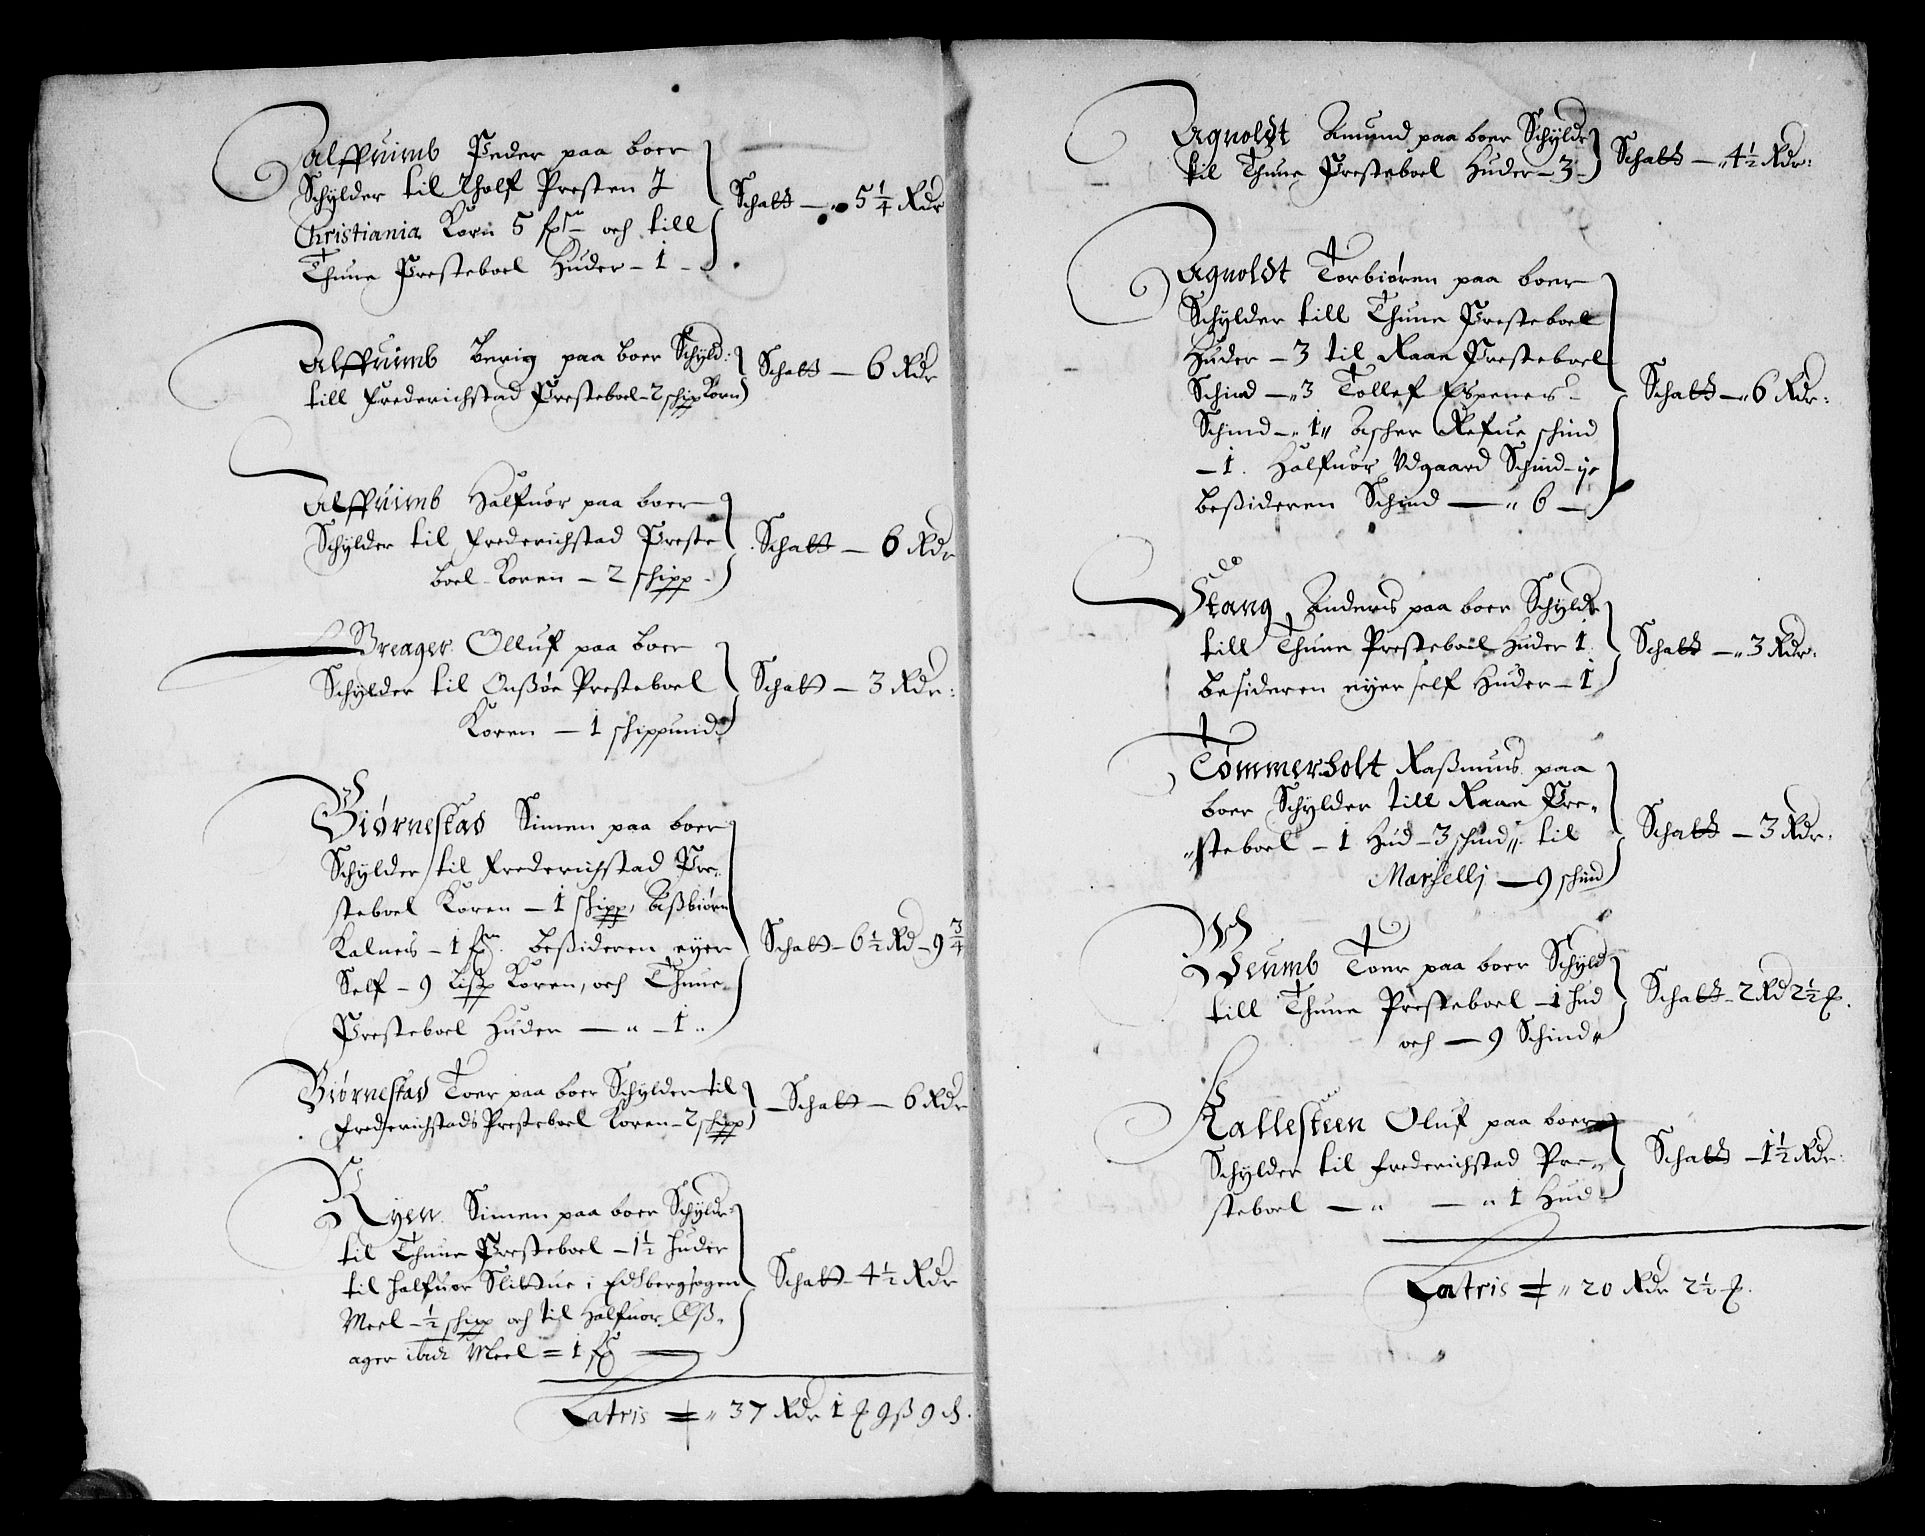 Alffuimb Peder paa boer
Schylder til Tholf Presten J
Christiania Korn 5 och till
Thune Presteboel Huder – 1 –
Schatt – 5 1/4 Rdr
Alffuimb Berig paa boer Schyld:
till Frederichstad Presteboel – 2 schip Korn
Schatt – 6 Rdr
Alffuimb Halfuor paa boer
Schylder til Frederichstad Preste
boel Koren – 2 schipp –
Schatt – 6 Rdr
Breager Olluf paa boer
Schylder til Onßøe Presteboel
Koren – 1 schippund
Schatt – 3 Rdr:
Biørnestad Simen paa boer
Schylder til Frederichstad Pre-
steboel Koren – 1 schipp, Aßbiørn
Kalneis – 1 beßideren eyer
Self – 9 Lißp Koren, och Thune
Presteboel Huder – „ – 1 „
Schatt – 6 1/2 Rd – 9 3/4
Biørnestad Toer paa boer Schylder til
Frederichstads Presteboel Koren – 2 schipp
Schatt – 6 Rdr
Ryen Simen paa boer Schylder
til Thune Presteboel – 1 1/2 huder
til halfuor Slittue i Edsbergsogen
Meel – 1/2 schipp och til Halfuor Øß-
ager ibid: Meel = 1
Schatt – 4 1/2 Rdr
Latris „ 37 Rdr 1 9 ß 9 ch.
Agnoldt Amund paa boer Schylder
til Thune Presteboel Huder – 3 –
Schatt – „ 4 1/2 Rdr:
Agnoldt Torbiøren paa boer
Schylder till Thune Presteboel
Huder – 3 til Raae Presteboel
Schind – „ 3 Tollef Espeneis –
Schind – „ 1 „ Refue schind
– 1. Halfuor Udgaard Schind – ij
beßideren Schind – „ 6 –
Schatt – „ 6 Rdr:
Stang Anders paa boer Schylder
till Thune Presteboel Huder 1
besideren eyer self Huder – 1
Schatt – „ 3 Rdr:
Tømmerholt Raßmus paa
boer Schylder till Raae Pre-
„steboel – 1 Hud – 3 schind „ til
Marselij – 9 schind
Schatt – 3 Rdr:
Weumb Toer paa boer Schyld
till Thune Presteboel – 1 hud
och – 9 Schind „
Schatt – 2 Rd 2 1/2
Kallesteen Oluf paa boer
Schylder til Frederichstad Pre-
steboel – „ – „ 1 Hud
Schatt – 1 1/2 Rdr:
Latris „ 20 Rdr 2 1/2